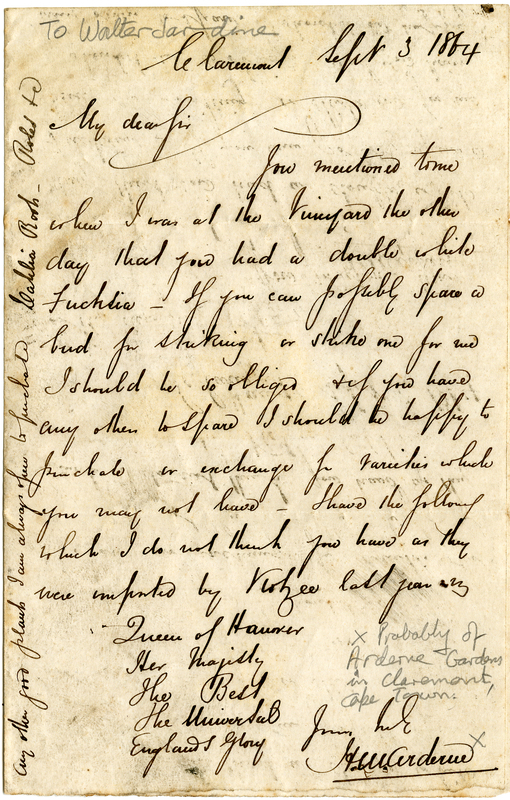 To Walter Jardine
Claremont Sept 3 1864
My dear Sir
You mentioned to me
when I was at the Vineyard the other
day that you had a double white
Fuchsia – If you can possibly spare a
bud for striking or strike one for me
I should be so obliged & if you have
any others to spare I should be happy to
purchase or exchange for varieties which
you may not have – I have the following
which I do not think you have as they
were imported by Kotzee last year viz
Queen of Hanover
Her Majesty
The Best
The Universal
Englands Glory
Yours truly
H.M. Arderne x
x Probably of
Arderne Gardens
in Claremont,
Cape Town.
any other good plants I am always open to purchase Dahlia Roots – Roses &c